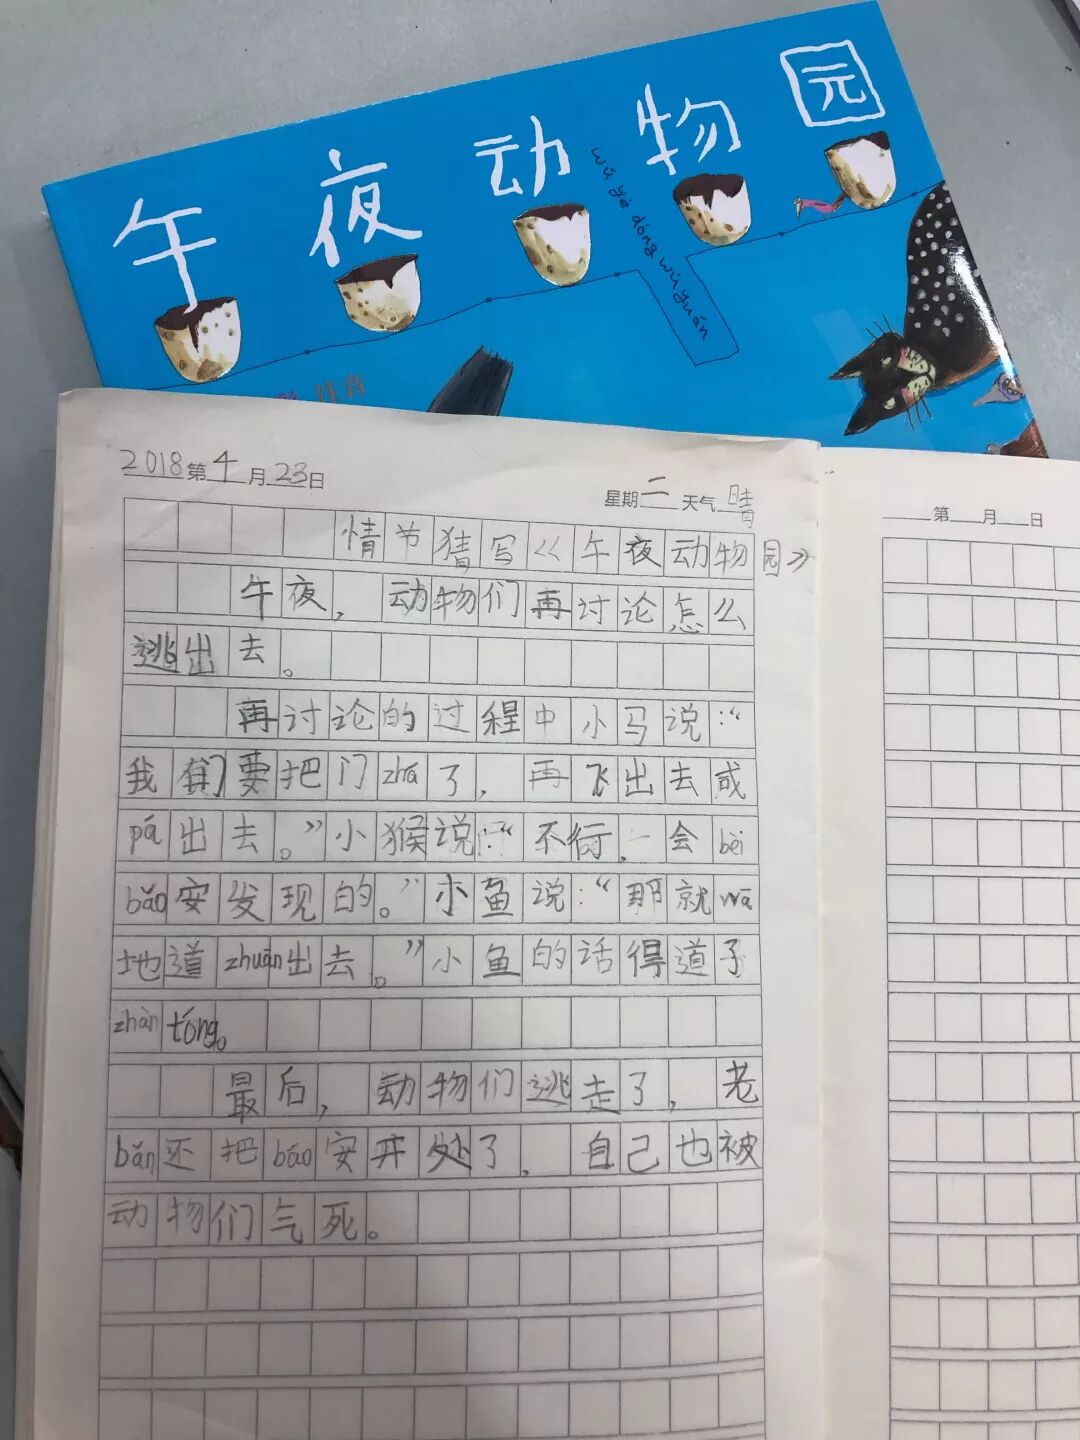 午夜动物园
wǔ yè dòng wù yuán
2018第4月23日
星期二天气晴
情节猜写《午夜动物园》
午夜，动物们再讨论怎么
逃出去。
再讨论的过程中小马说：“
我们要把门zhá了，再飞出去或
pá出去。”小猴说：“不行，会bèi
bǎo安发现的。”小鱼说：“那就wā
地道zhuān出去。”小鱼的话得道子
zhàn tóng。
最后，动物们逃走了，老
bǎn还把bǎo安开处了，自己也被
动物们气死。
第 月 日